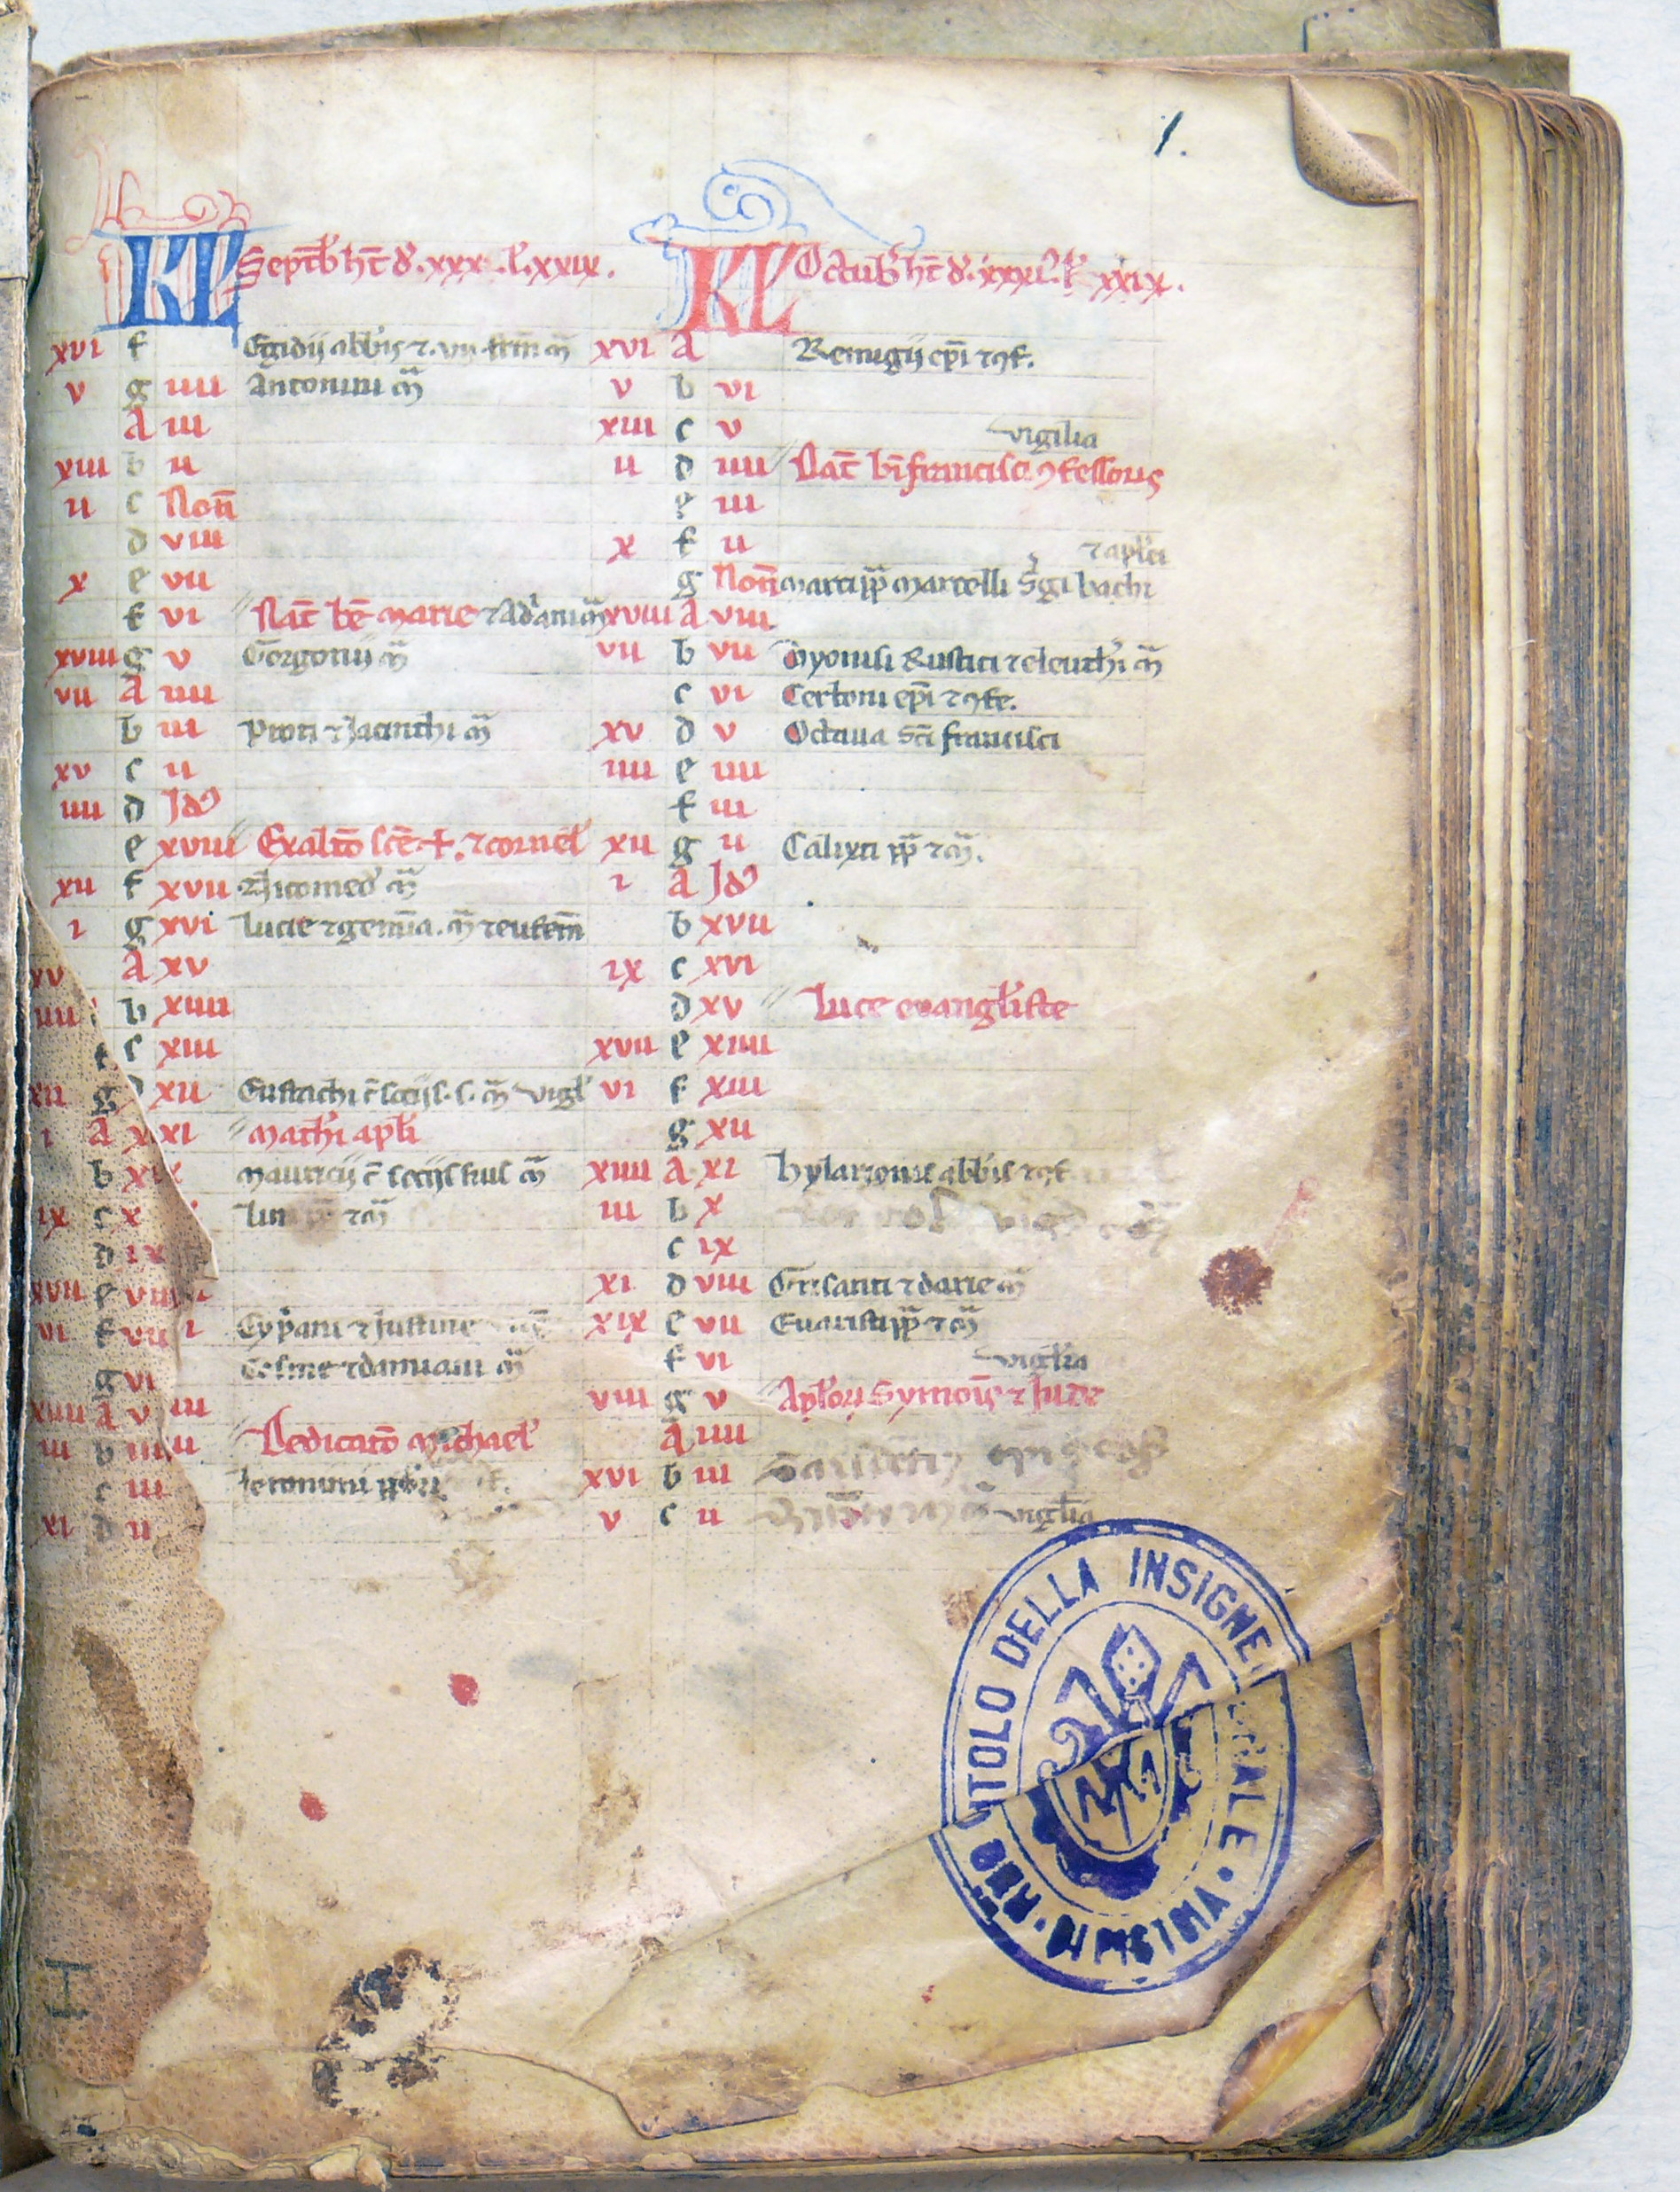 1.
KL Septēb' hт̄ d'. xxx. l'. xxix.
xvi f Egidij abb̄is ⁊ vii frm̄ m̄
v g iiii Antonini m̄
A iii
xiii b ii
ii c Non̄
d viii
x e vii
f vi Nat̄ bē marie ⁊ Adriani m̄
xviii g v Gorgonij m̄
vii A iiii
b iii Proti ⁊ Jacinthi m̄
xv c ii
iiii d Jd'
e xviii Exaltō scē +. ⁊ cornel'
xii f xvii Nicomed' m̄
i g xvi Lucie ⁊ gemīa. m̄ ⁊ eufem̄
A xv
b xiiii
c xiii
xii Eustachi c̄ socijs. s. m̄ vigl'
xi Mathi apl'i
Mauricij c̄ socijs suis m̄
Lini pp̄ ⁊ m̄
Cyp̄ani ⁊ Justine
Cosme ⁊ damiani m̄
Dedicatō Michael'
Jeronimi pb̄ri
xv
iiii
xii g
i A x
b xix
ix c x
d ix
xvii e viii
vi f vii
g vi
xiiii A v
iii b iiii
c iii
xi d ii
KL Octub' hт̄ d'. xxxi. l' xxix.
xvi A Remigij epī ⁊ ꝯf.
v b vi
xiii c v vigilia
ii d iiii Nat̄ bī francisci ꝯfessoris
e iii
x f ii
⁊ apl'ei
g Non̄ marci pp̄ marcelli s'gi bachi
xviii A viii
vii b vii Dyonisi Rustici ⁊ eleuth'i m̄
c vi Cerboni epī ⁊ ꝯfe.
xv d v Octaua sc̄i francisci
iiii e iiii
f iii
xii g ii Calixti pp̄ ⁊ m̄.
i A Jd'
b xvii
ix c xvi
d xv Luce evangl'iste
xvii e xiiii
vi f xiii
g xii
xiiii A xi hylarionis abb̄is ⁊ ꝯf
iii b x
c ix
xi d viii Grisanti ⁊ darie m̄
xix e vii Euaristi pp̄ ⁊ m̄
f vi vigilia
viii g v Apl'oꝝ Symōis ⁊ Jude
A iiii
xvi b iii
v c ii vigilia
ITOLO DELLA INSIGNE
RALE • DI PISTOIA •